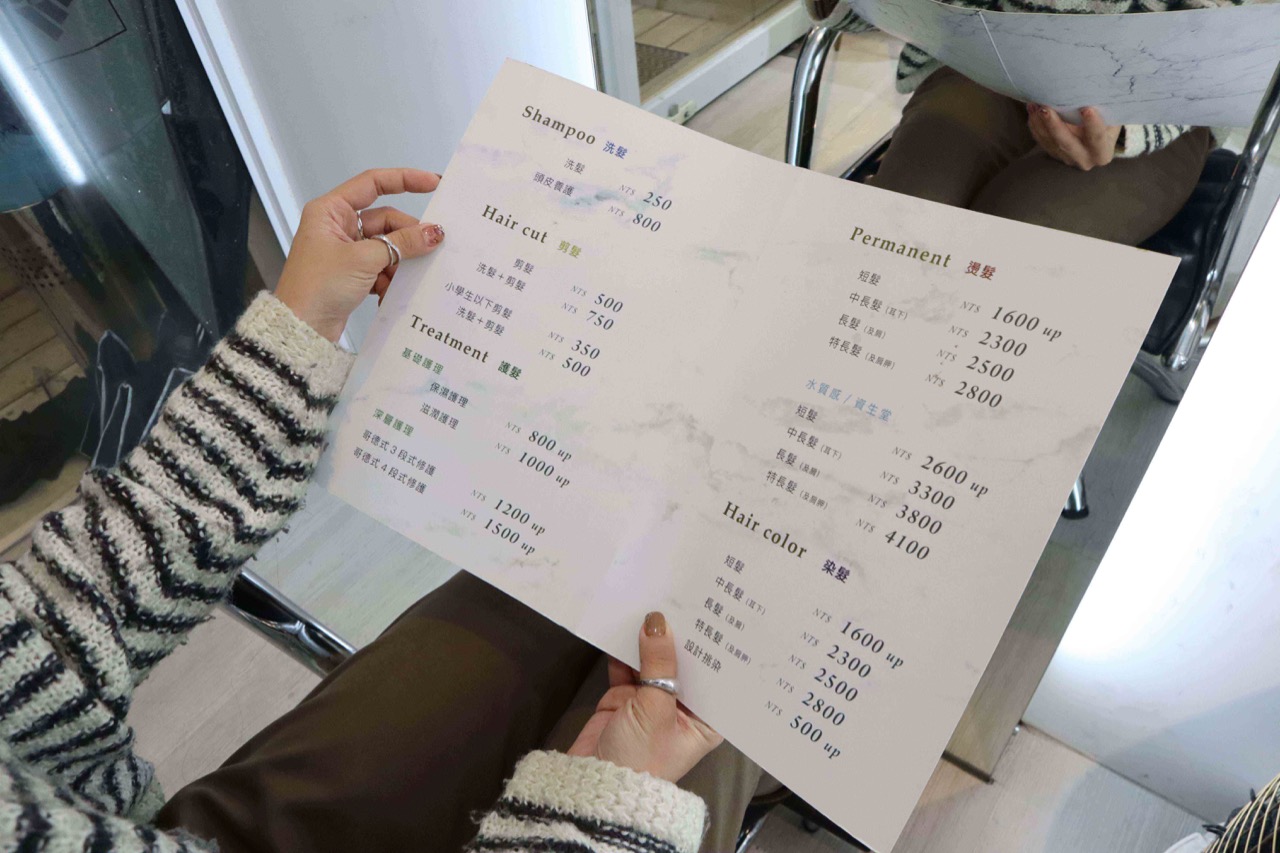 Shampoo 洗髮
洗髮 NT$ 250
頭皮養護 NT$ 800
Hair cut 剪髮
剪髮 NT$ 500
洗髮＋剪髮 NT$ 750
小學生以下剪髮 NT$ 350
洗髮＋剪髮 NT$ 500
Treatment 護髮
基礎護理
保濕護理 NT$ 800 up
滋潤護理 NT$ 1000 up
深層護理
哥德式3段式修護 NT$ 1200 up
哥德式4段式修護 NT$ 1500 up
Permanent 燙髮
短髮 NT$ 1600 up
中長髮 (耳下) NT$ 2300
長髮 (及肩) NT$ 2500
特長髮 (及肩胛) NT$ 2800
水質感 / 資生堂
短髮 NT$ 2600 up
中長髮 (耳下) NT$ 3300
長髮 (及肩) NT$ 3800
特長髮 (及肩胛) NT$ 4100
Hair color 染髮
短髮 NT$ 1600 up
中長髮 (耳下) NT$ 2300
長髮 (及肩) NT$ 2500
特長髮 (及肩胛) NT$ 2800
設計挑染 NT$ 500 up